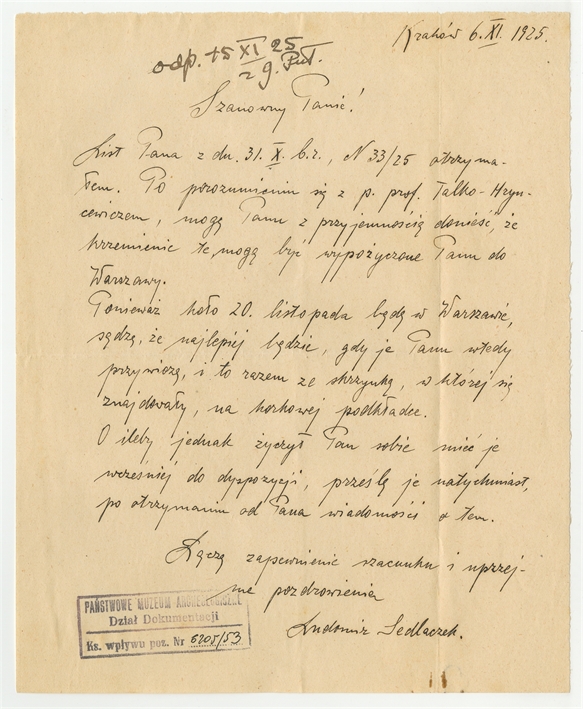 Kraków 6.XI. 1925.
odp. 15 XI 25
Szanowny Panie!
List Pana z dn. 31. X. b.r., N 33/25 otrzyma-
łem. Po porozumieniu się z p. prof. Talko-Hryn-
cewiczem, mogę Panu z przyjemnością donieść, że
krzemienie te, mogą być wypożyczone Panu do
Warszawy.
Ponieważ koło 20. listopada będę w Warszawie,
sądzę, że najlepiej będzie, gdy je Panu wtedy
przywiozę, i to razem ze skrzynką, w której się
znajdowały, na korkowej podkładce.
O ileby jednak życzył Pan sobie mieć je
wcześniej do dyspozycji, prześlę je natychmiast,
po otrzymaniu od Pana wiadomości o tem.
Łączę zapewnienie szacunku i uprzej-
me pozdrowienia
Ludomir Sedlaczek.
PAŃSTWOWE MUZEUM ARCHEOLOGICZNE
Dział Dokumentacji
Ks. wpływu poz. Nr 6205/53